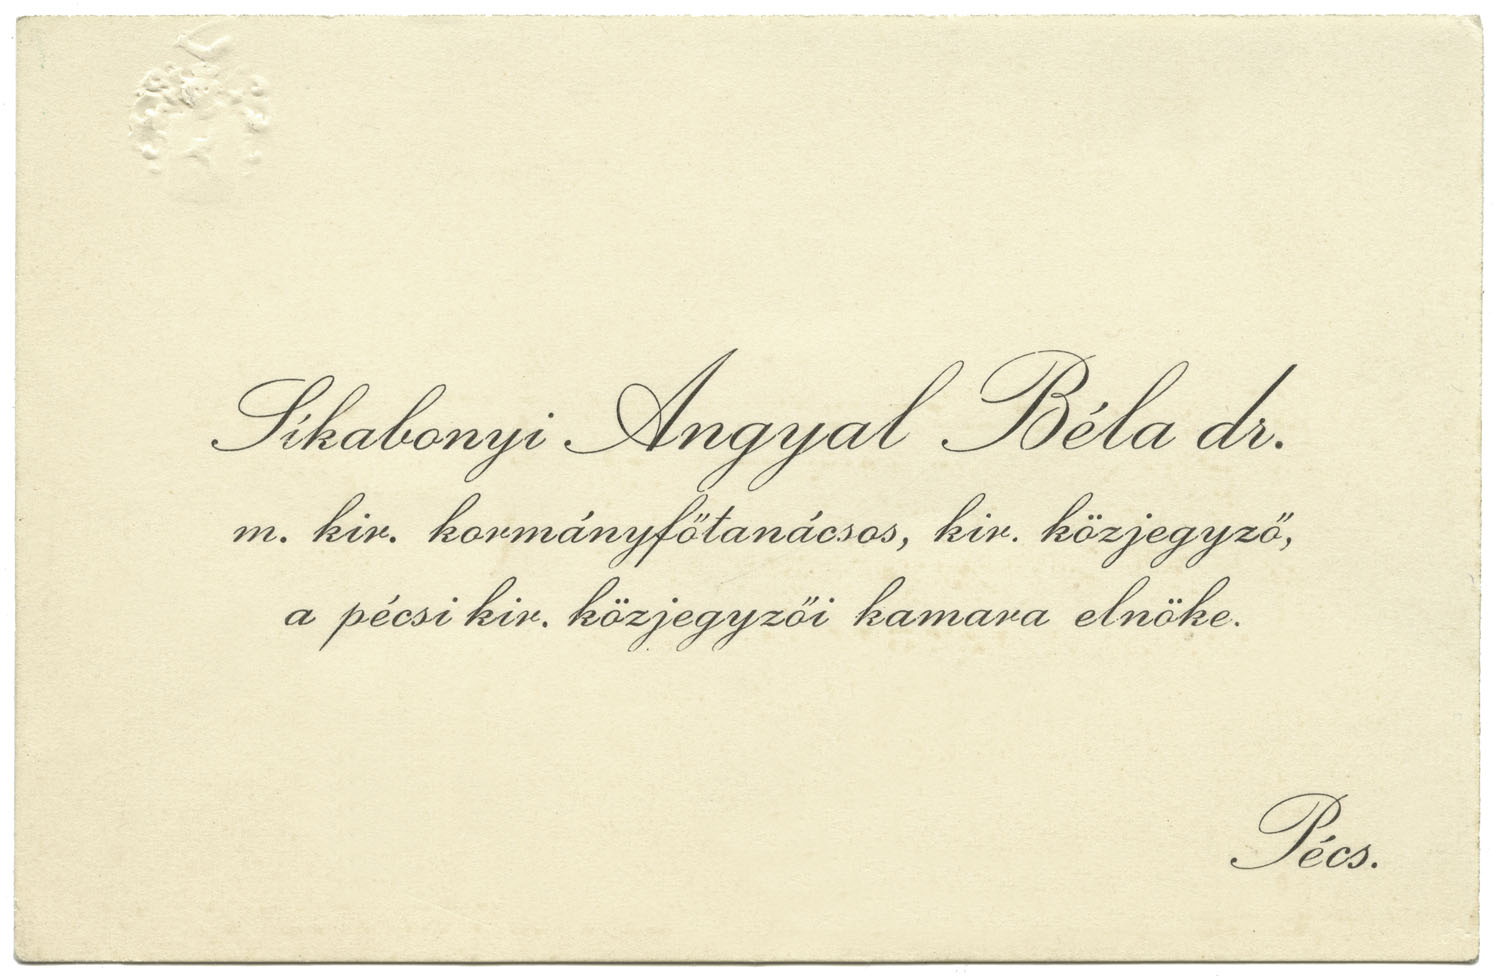 Síkabonyi Angyal Béla dr.
m. kir. kormányfőtanácsos, kir. közjegyző,
a pécsi kir. közjegyzői kamara elnöke.
Pécs.